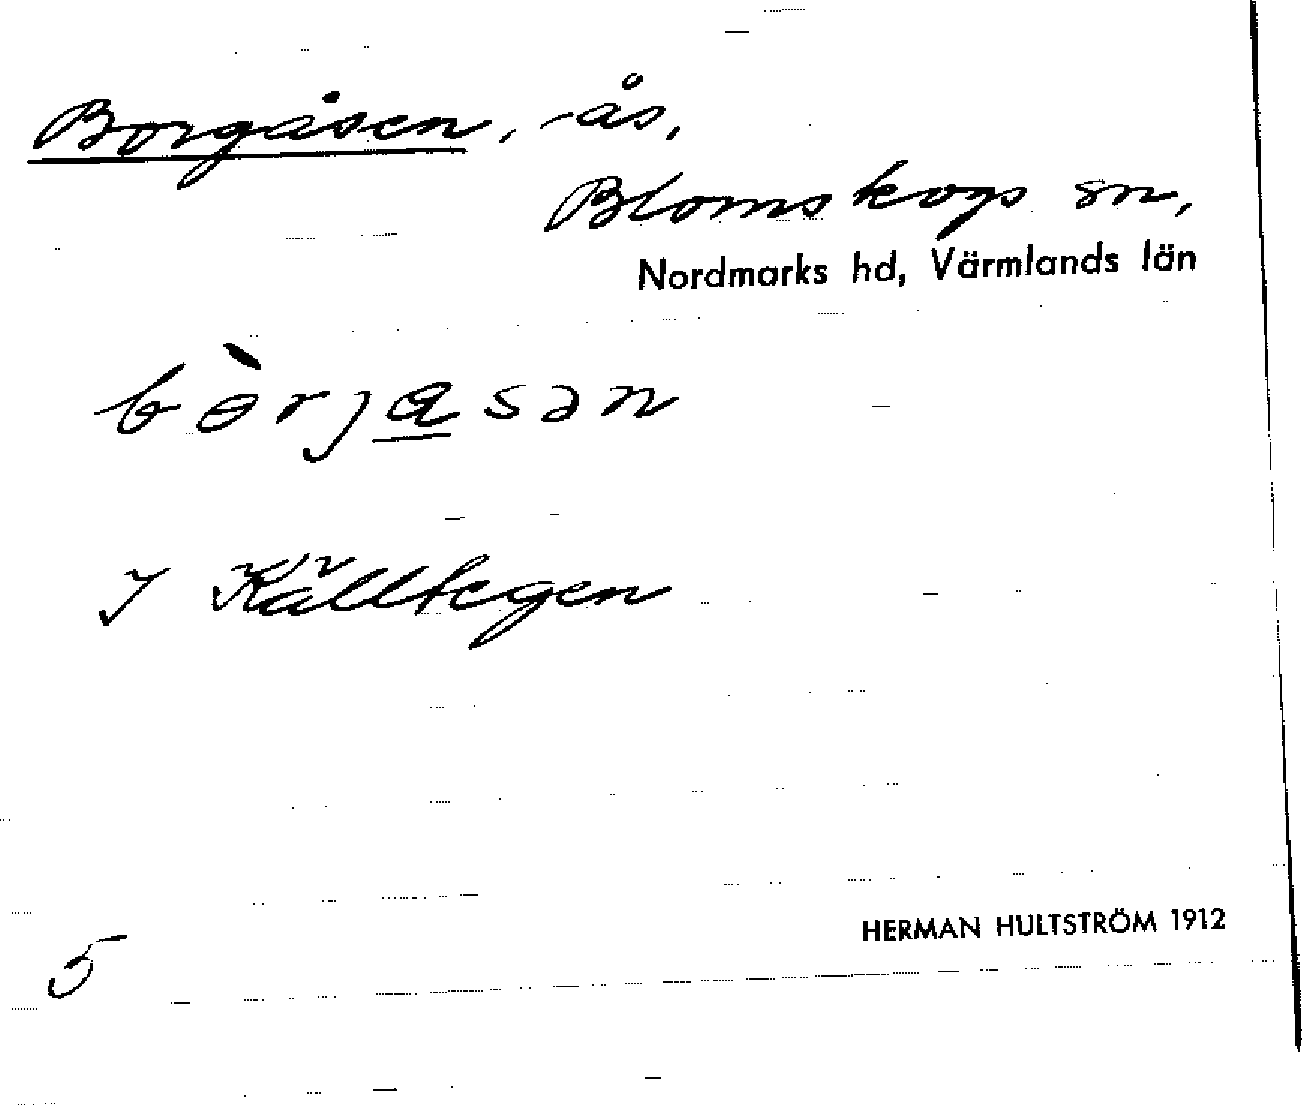 Borgåsen, -ås,
Blomskogs sn,
Nordmarks hd, Värmlands län
bɵ̀rjasən
I Källtegen
HERMAN HULTSTRÖM 1912
5